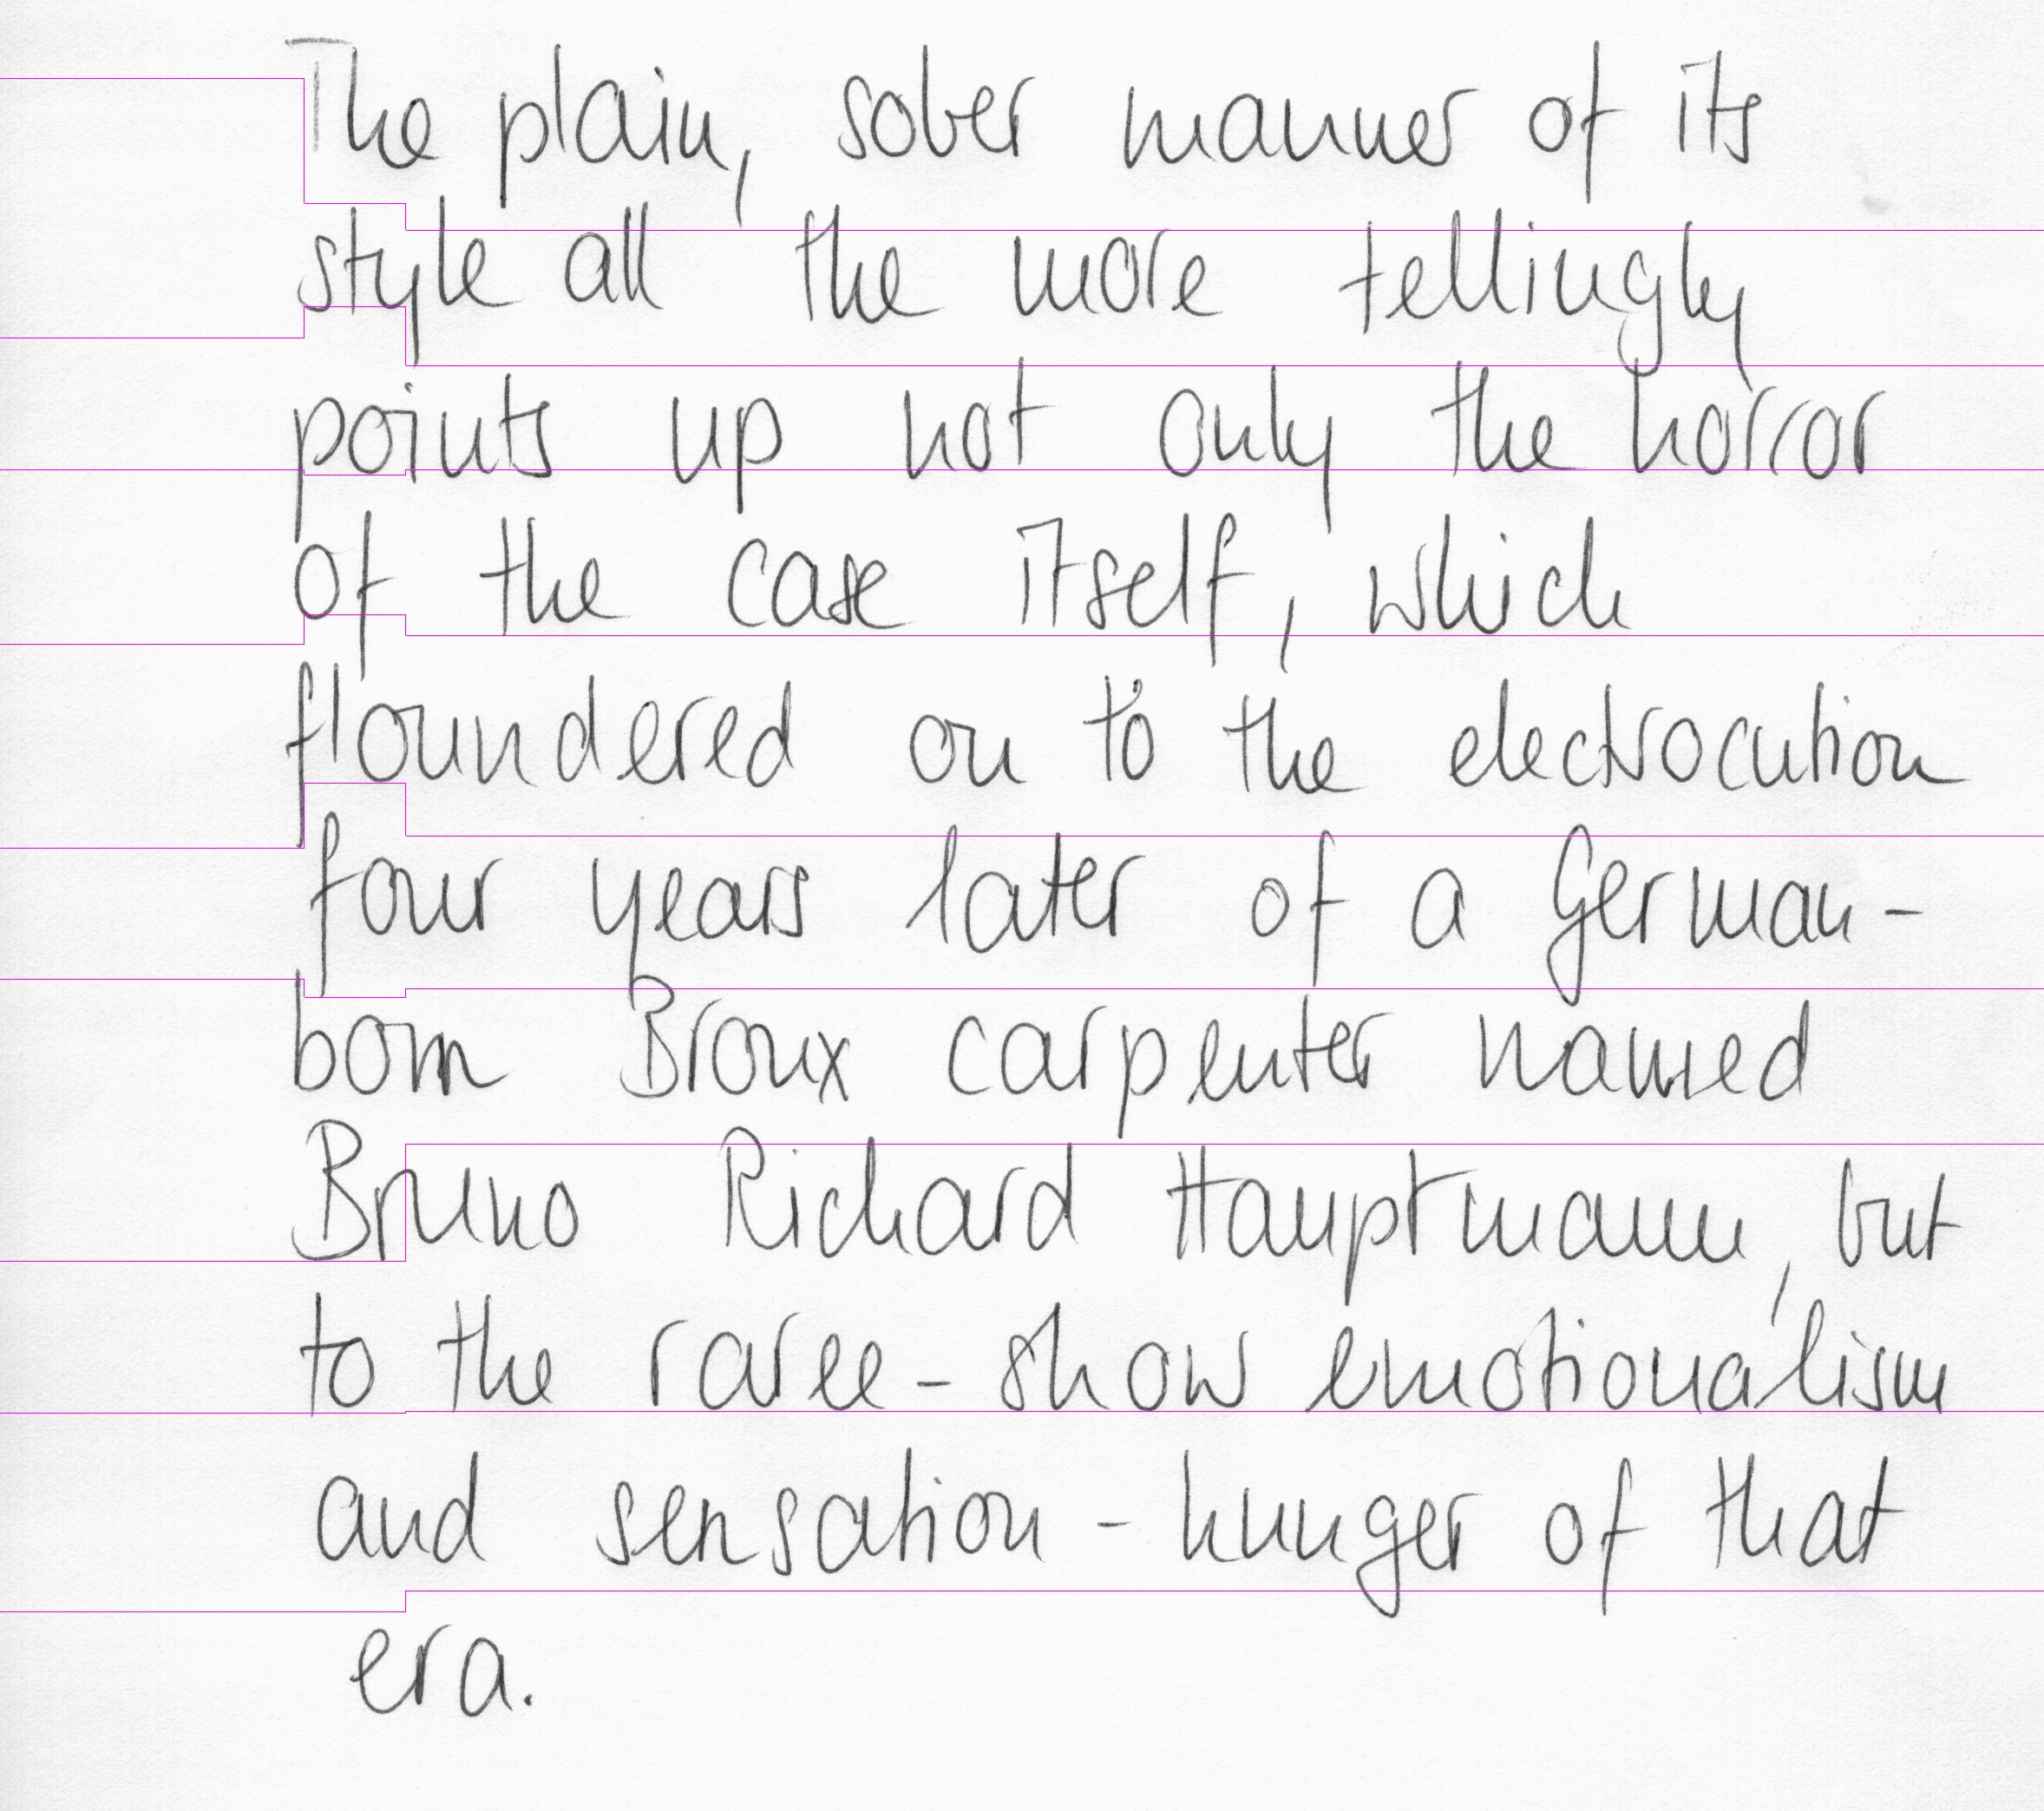 The plain, sober manner of its
style all the more tellingly
points up not only the horror
of the case itself, which
floundered on to the electrocution
four years later of a German-
born Bronx carpenter named
Bruno Richard Hauptmann, but
to the raree-show emotionalism
and sensation-hunger of that
era.